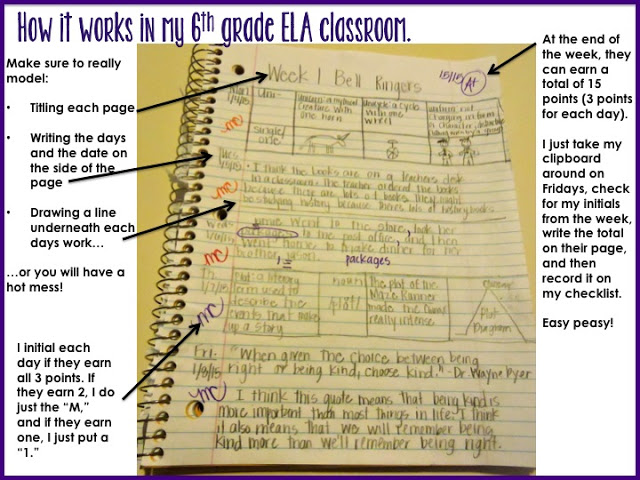 How it works in my 6th grade ELA classroom.
Make sure to really
model:
• Titling each page
• Writing the days
and the date on
the side of the
page
• Drawing a line
underneath each
days work…
…or you will have a
hot mess!
I initial each
day if they earn
all 3 points. If
they earn 2, I do
just the “M,”
and if they earn
one, I just put a
“1.”
Week 1 Bell Ringers
15/15 A+
Mon.
Uni-
single/
one
creature with
one horn
cycle
with one
wheel
MC
Tues.
• I think the books are on a teachers desk
in a classroom. The teacher ordered the books
because there are lots of books they might
be studying history because there's lots of history books.
MC
went to the store,
the post office, and then
went home to make dinner for her
packages
MC
Th.
a literary
term used to
describe the
events that make
up a story
noun
The plot of the
Maze Runner
made the
really intense
Plot
Diagram
MC
Fri.
1/9/15
"When given the choice between being
right or being kind, choose kind." -Dr. Wayne Dyer
MC
I think this quote means that being kind is
more important than most things in life. I think
it also means that we will remember being
kind more than we'll remember being right.
At the end of
the week, they
can earn a
total of 15
points (3 points
for each day).
I just take my
clipboard
around on
Fridays, check
for my initials
from the week,
write the total
on their page,
and then
record it on
my checklist.
Easy peasy!